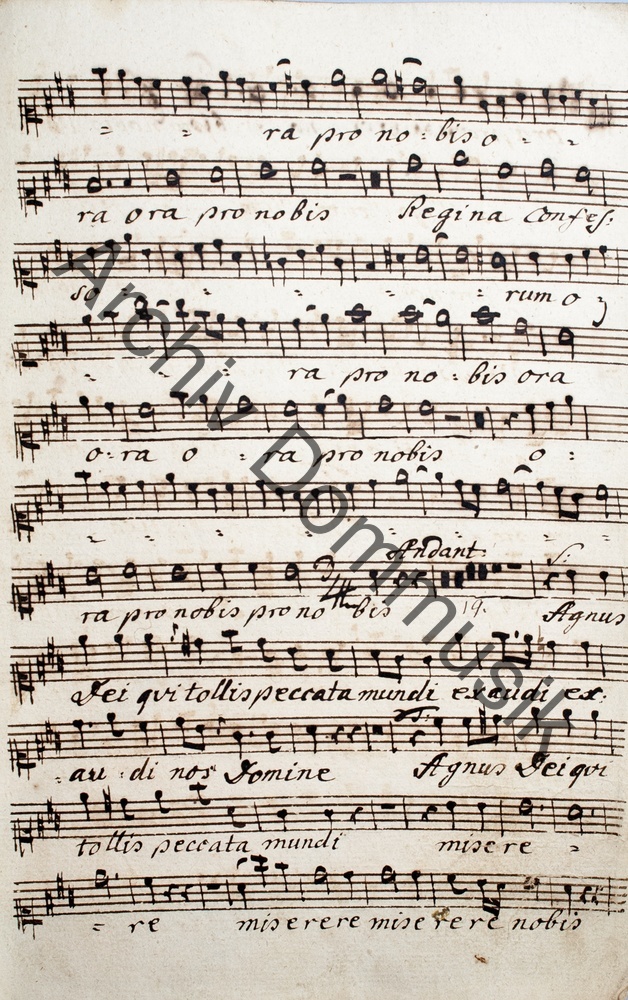 = = ra pro no = bis o = =
ra ora pro nobis Regina Confes:
so = = = = = rum o
= = = ra pro no = bis ora
o = ra o = ra pro nobis o =
= = = = = =
Andant:
ra pro nobis pro no bis 19. Agnus
Dei qui tollis peccata mundi exaudi ex:
= au = di nos Domine Agnus Dei qui
tollis peccata mundi misere =
= re miserere miserere nobis
Archiv Dommusik